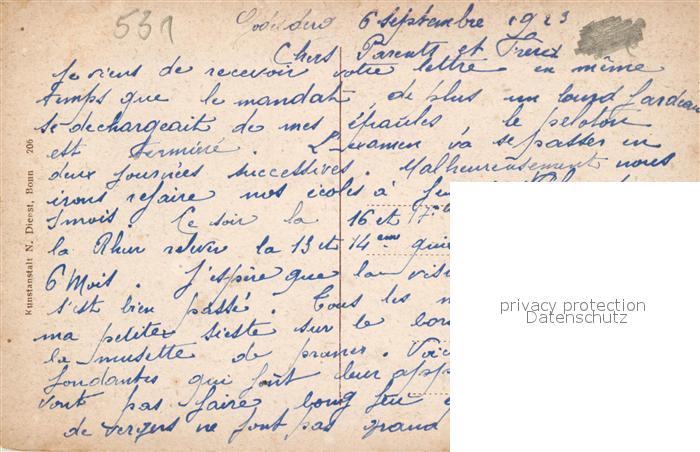 531
Godesberg 6 septembre 1923
Chers Parents et Frère
Je viens de recevoir votre lettre en même
temps que le mandat, de plus un lourd fardeau
se dechargeait de mes épaules le peloton
est terminé. L'examen va se passer en
deux journées successives. Malheureusement nous
irons refaire nos écoles à
1 mois. Ce soir la 16 et 17
la Rhur relever la 13 et 14 eme qui
6 Mois. J'espère que la
s'est bien passé. Tous les
ma petite sieste sur le
la musette de prunes. Voi
fondantes qui font leur app
vont pas faire long feu
de vergers ne font pas grand
Kunstanstalt N. Dienst, Bonn 206
privacy protection
Datenschutz